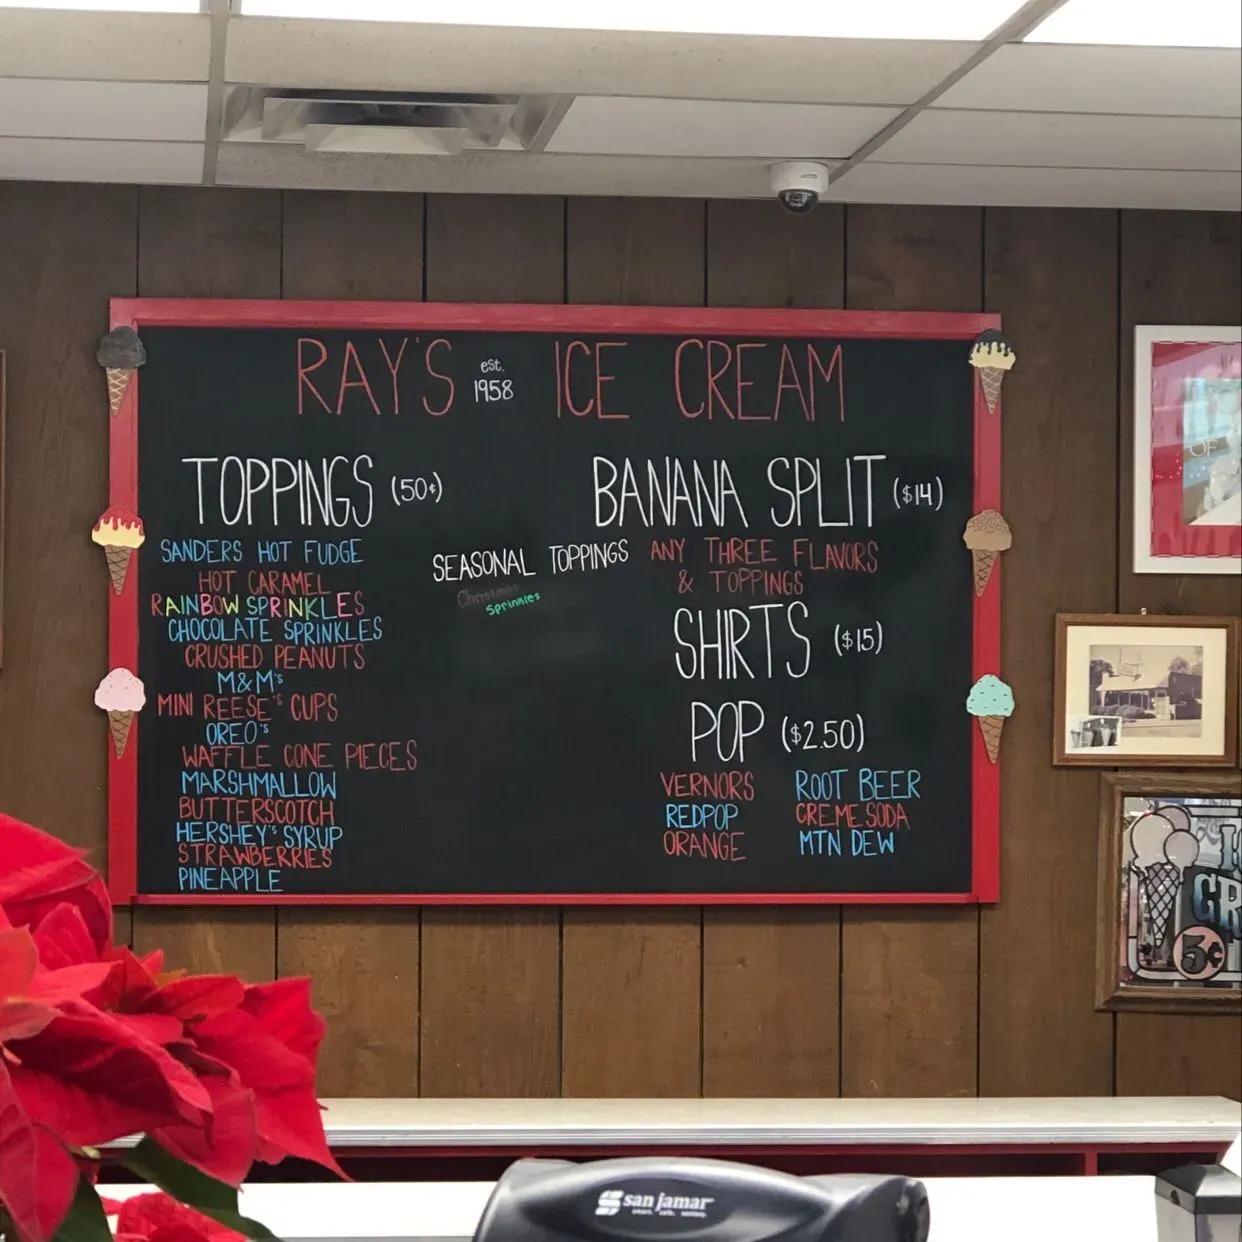 RAY'S est. 1958 ICE CREAM
TOPPINGS (50¢)
SANDERS HOT FUDGE
HOT CARAMEL
RAINBOW SPRINKLES
CHOCOLATE SPRINKLES
CRUSHED PEANUTS
M&M's
MINI REESE'S CUPS
OREO's
WAFFLE CONE PIECES
MARSHMALLOW
BUTTERSCOTCH
HERSHEY'S SYRUP
STRAWBERRIES
PINEAPPLE
SEASONAL TOPPINGS
Christmas
Sprinkles
BANANA SPLIT ($14)
ANY THREE FLAVORS
& TOPPINGS
SHIRTS ($15)
POP ($2.50)
VERNORS
REDPOP
ORANGE
ROOT BEER
CREME SODA
MTN DEW
OF
5¢
san jamar